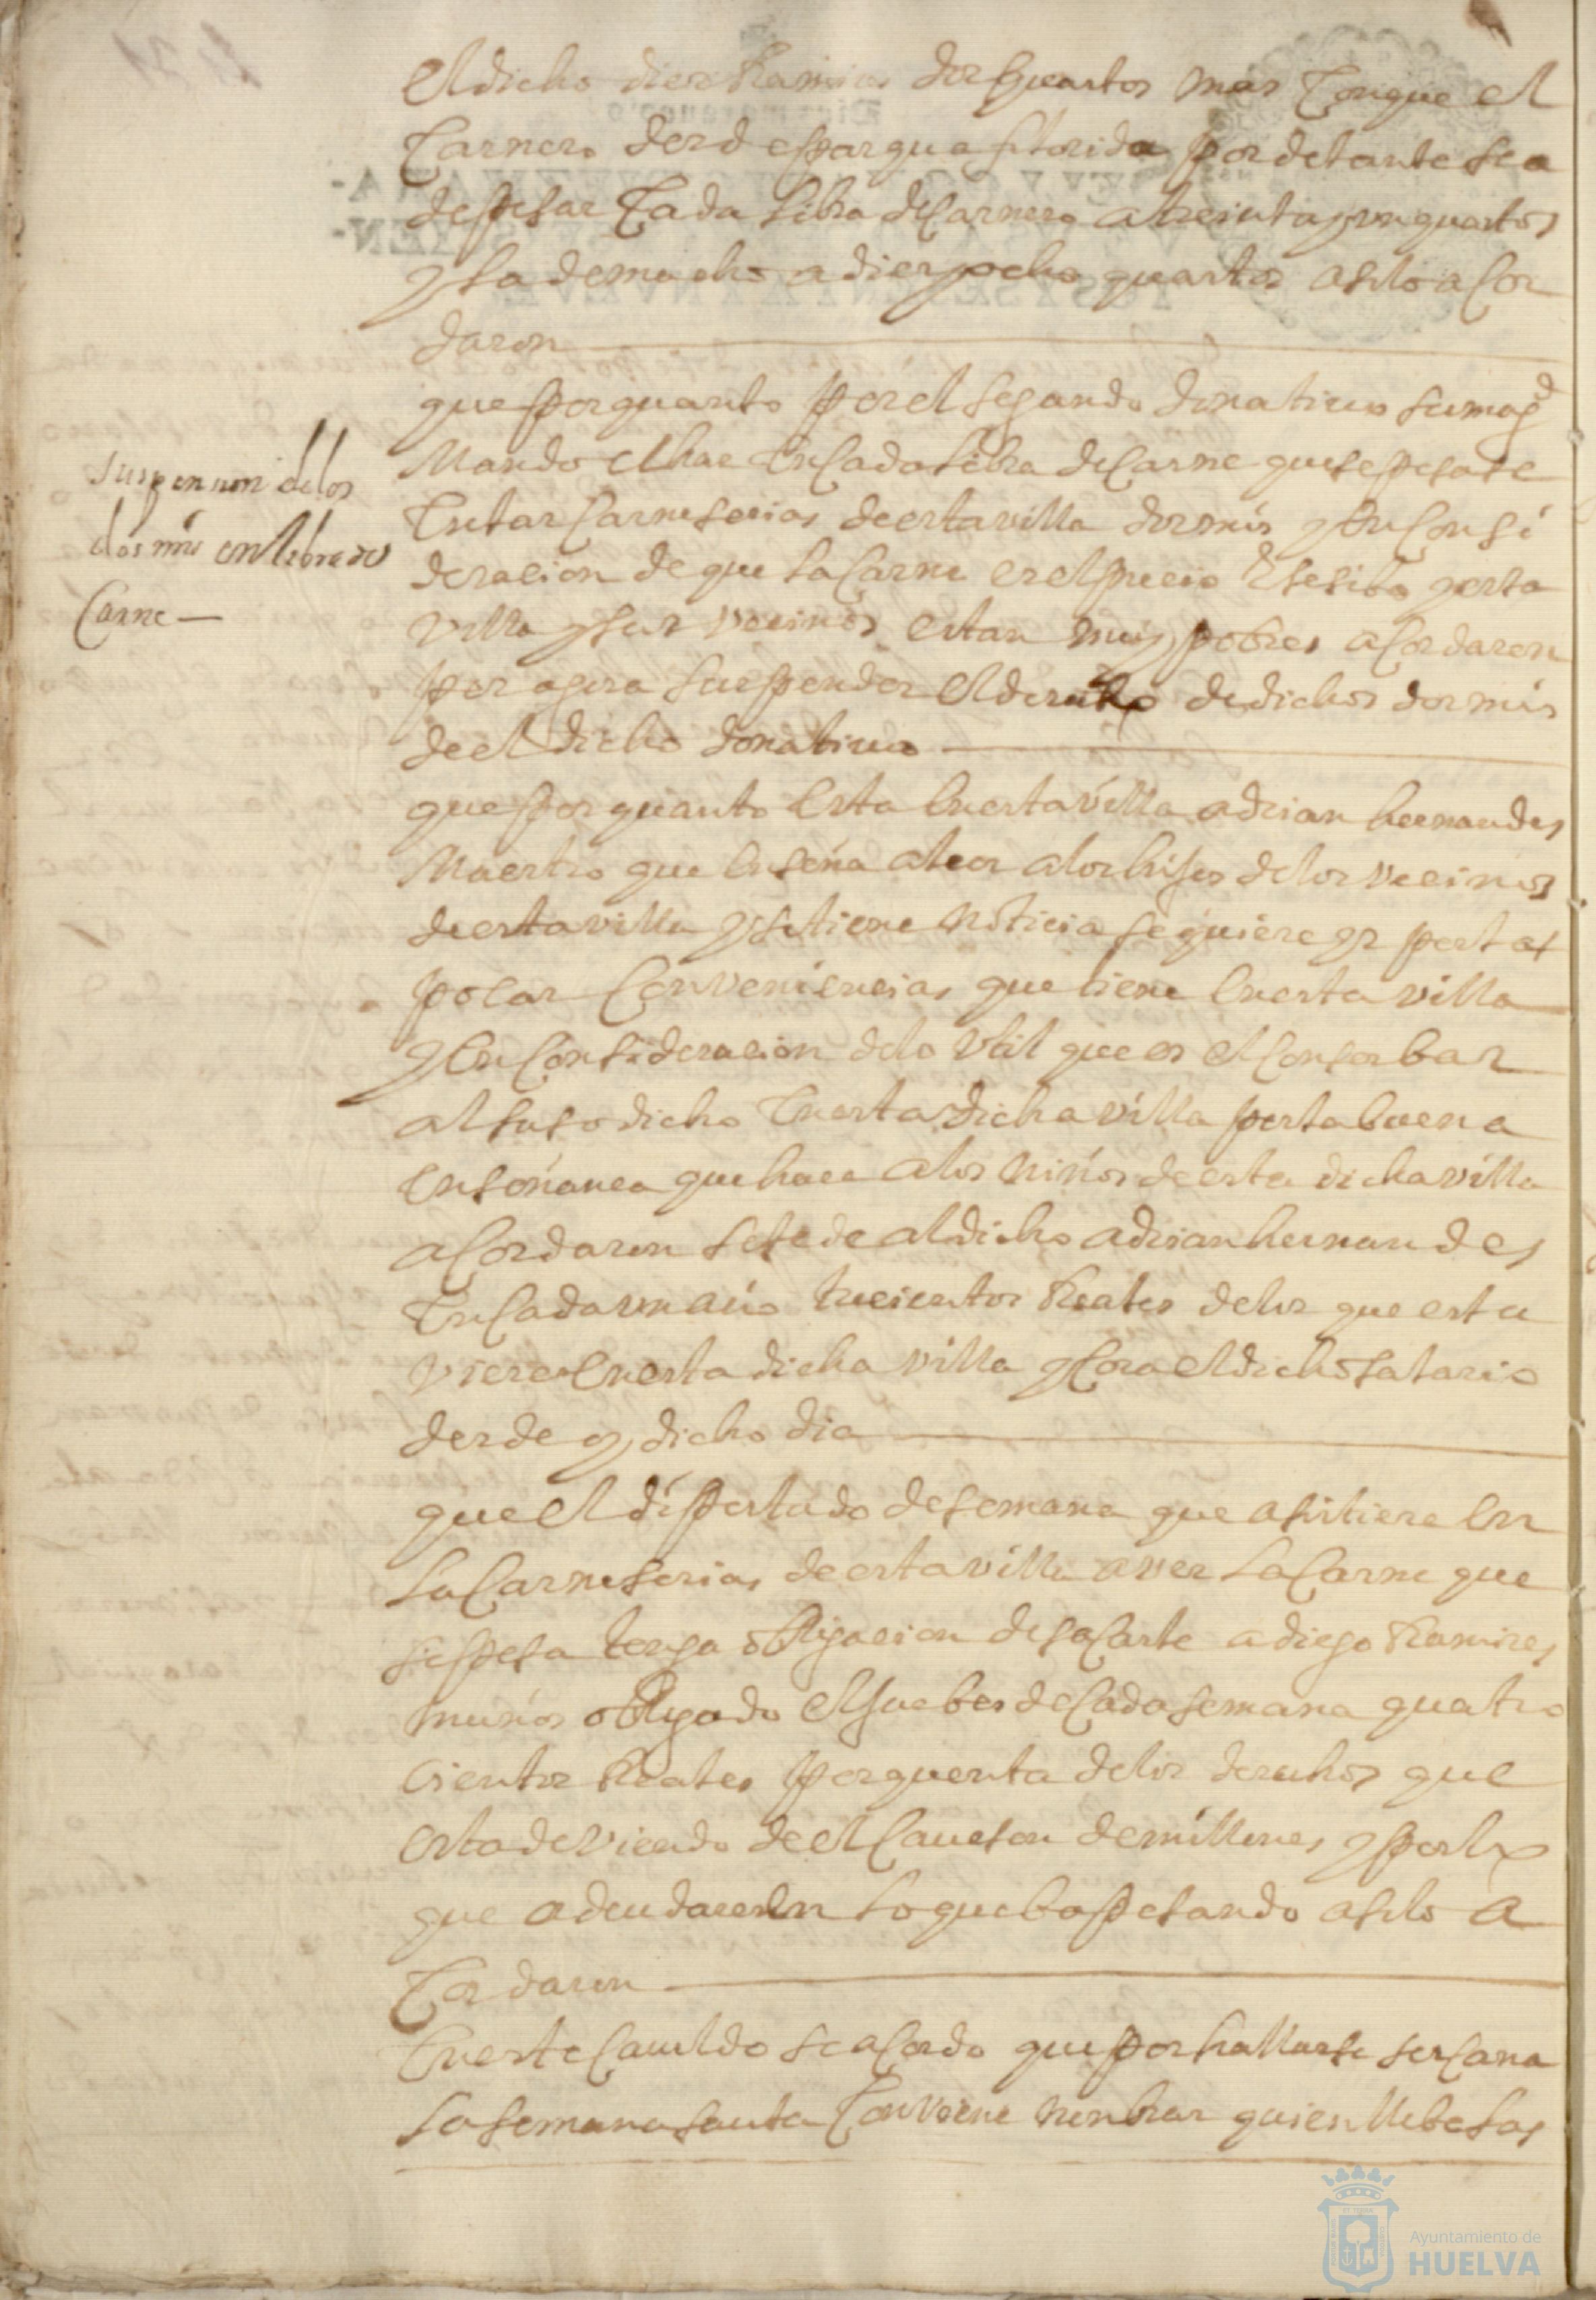 El dicho diego Ramires dos quartos mas Conque el
Carnero desde espasqua florida por delante se a
de pesar Cada libra de Carnero a treinta y un quartos
y la de macho a diez y ocho quartos asi lo a Cor
daron
que por quanto por el segundo donativo su magd
Suspension de los
dos mrs en libra de
Carne
Mando echar En Cada libra de Carne que se pesase
En las Carneserias de esta villa dos mrs y En Consi
derasion de que la Carne es el presio esesibo y esta
Villa y sus vecinos estan muy pobres a Cordaron
por agora suspender El derecho de dichos dos mrs
de el dicho donativo
que por quanto Esta En esta villa adrian hernandes
Maestro que Enseña a leer a los hijos de los vecinos
de esta villa y se tiene noticia se quiere yr por las
pocas Conveniencias que tiene En esta villa
y En Consideracion de lo Util que es el Conserbar
al susodicho En esta dicha villa por la buena
Enseñansa que hace a los niños de esta dicha villa
a Cordaron se le de al dicho adrian hernandes
En Cada un año trecientos Reales de los que estu
viere En esta dicha villa y Cora el dicho salario
desde oy dicho dia
que el diputado de semana que asistiere En
las Carneserias de esta villa a ver la Carne que
se pesa tenga obligacion de sacarle a diego Ramires
muños obligado El juebes de Cada semana quatro
cientos Reales por quenta de los derechos que
esta deviendo de el Caveson de millones y por lo
que adeudare En lo que ba pesando asi lo A
Cordaron
En este Cavildo se a Cordo que por hallarse serCana
la semana santa Conviene nonbrar quien llebe las
Ayuntamiento de
HUELVA